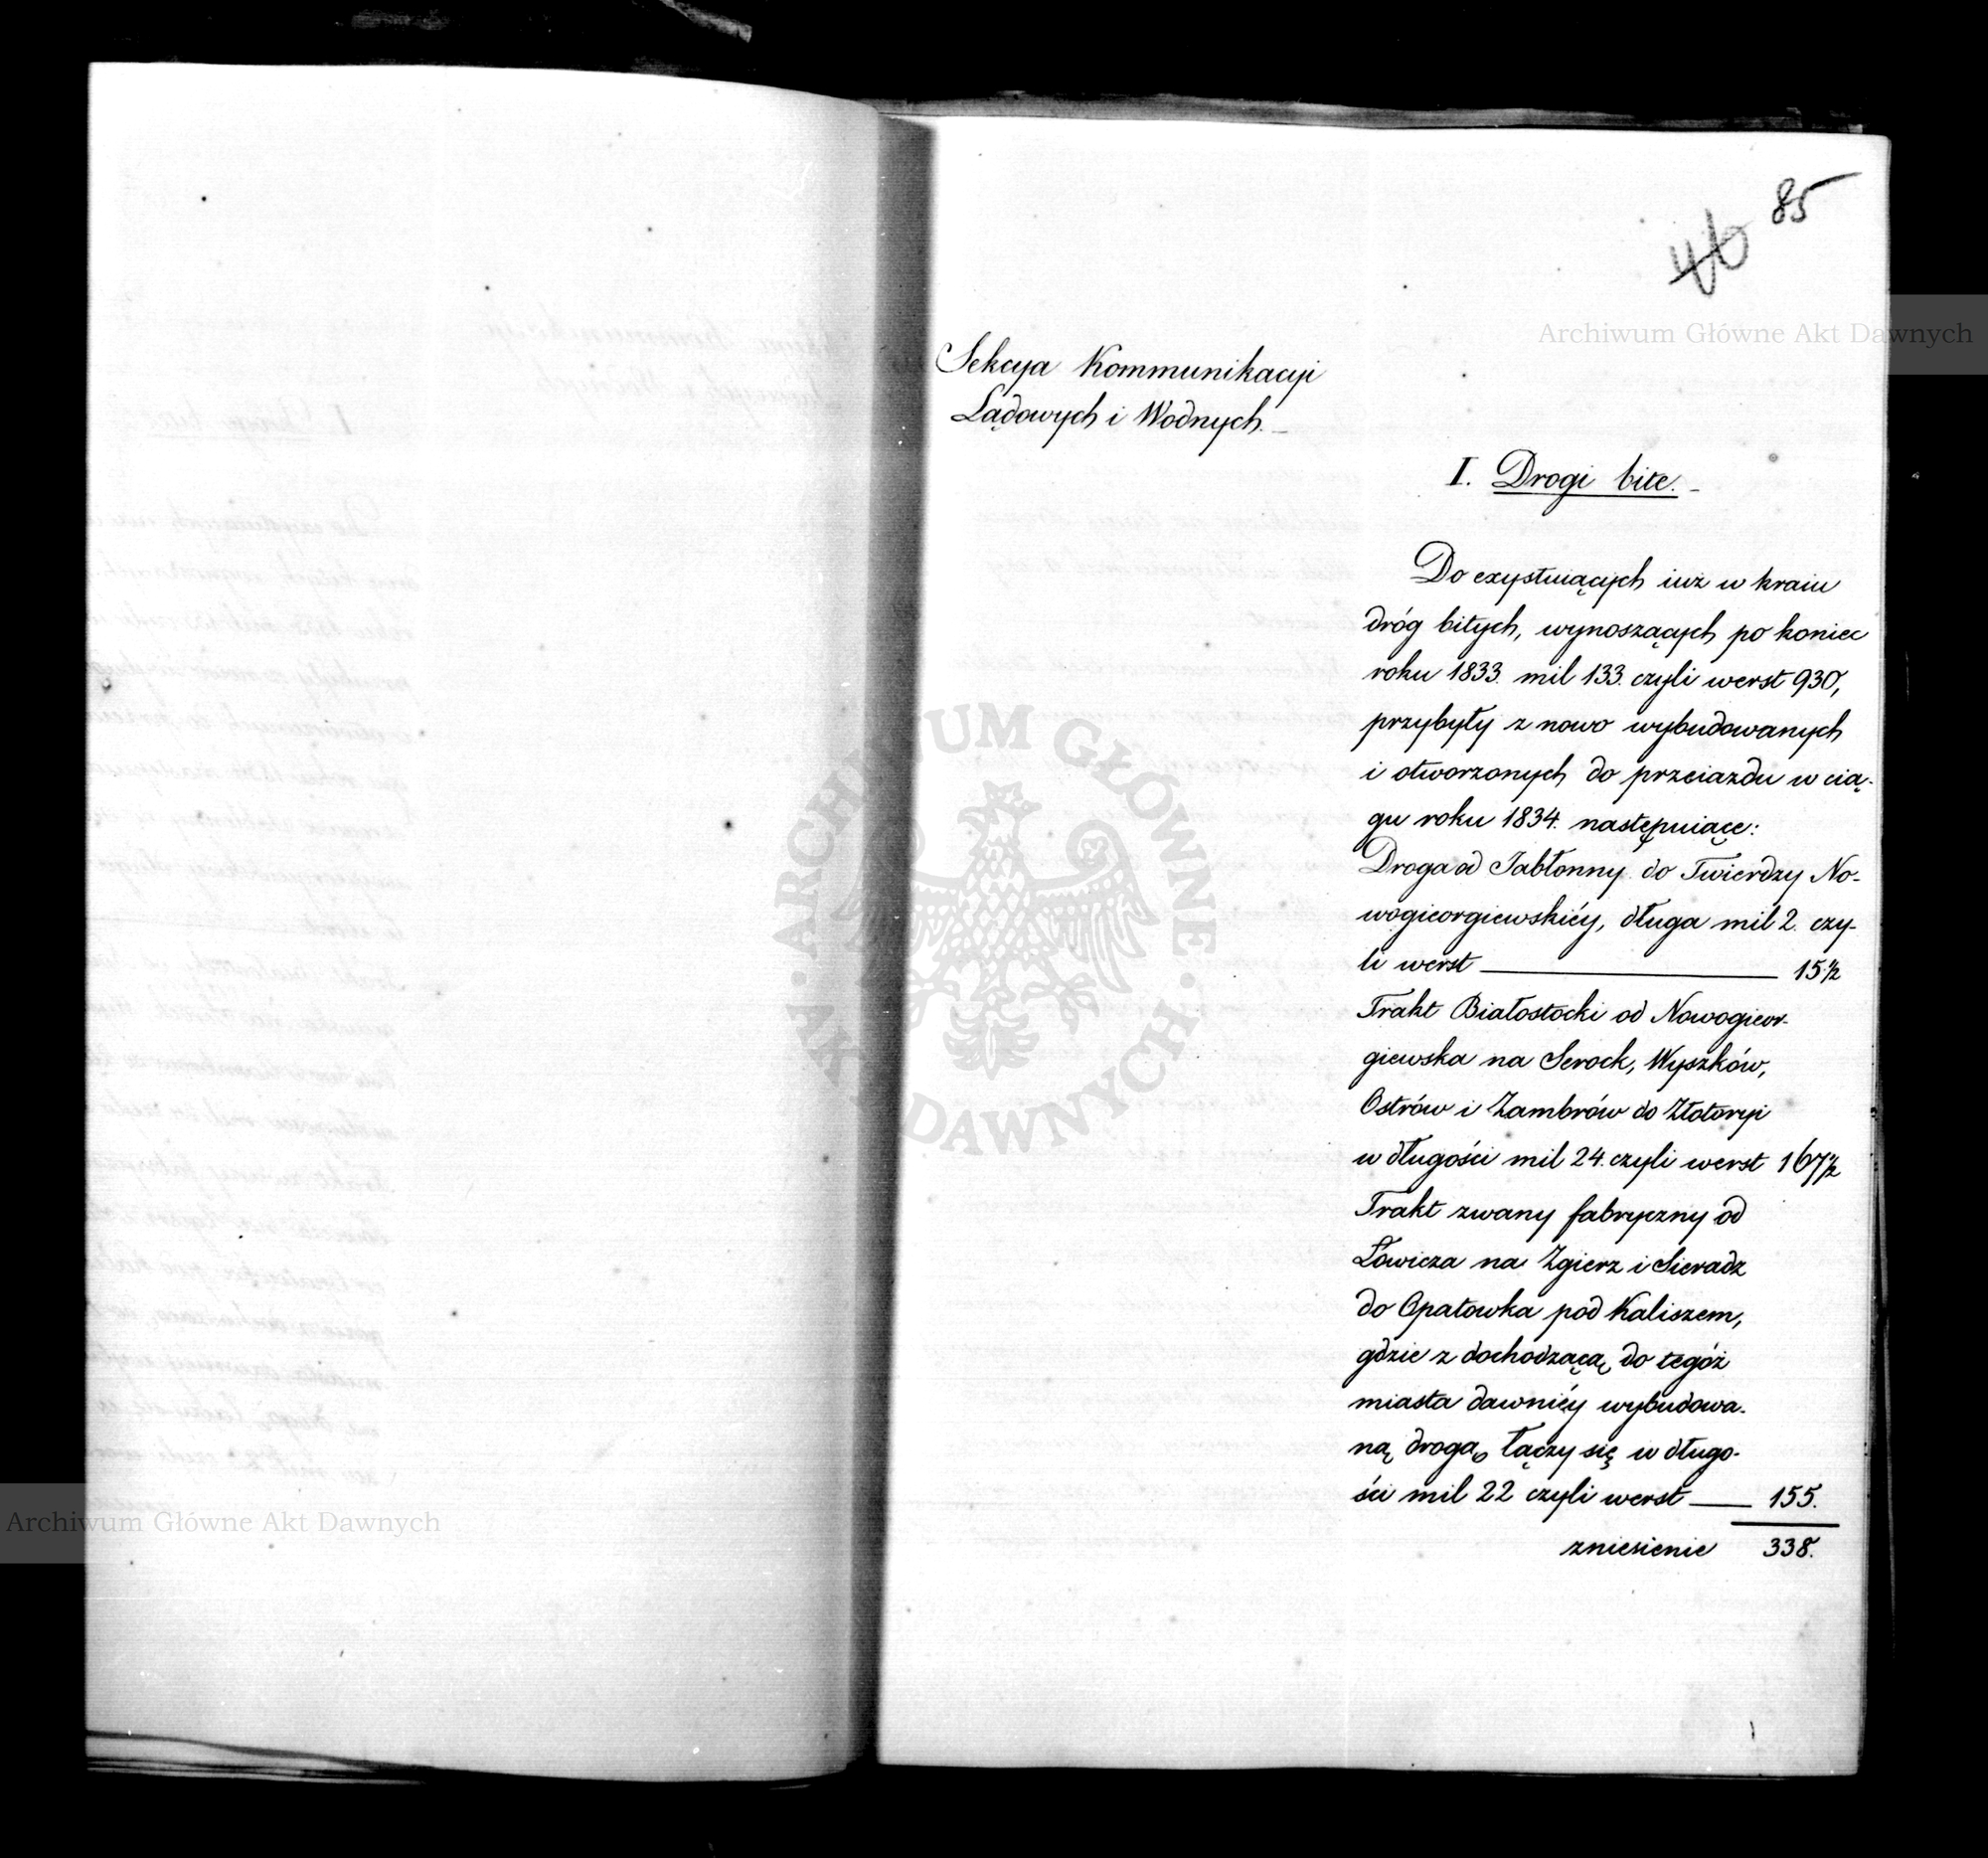 85
46
Archiwum Główne Akt Dawnych
Sekcya Kommunikacyi
Lądowych i Wodnych.
I. Drogi bite.
Do exystuiących iuż w kraiu
dróg bitych, wynoszących po koniec
roku 1833. mil 133. czyli werst 930,
przybyły z nowo wybudowanych
i otworzonych do przeiazdu w cią-
gu roku 1834. następuiące:
Droga od Jabłonny do Twierdzy No-
wogieorgiewskiéy, długa mil 2. czy-
li werst 15 1/2
Trakt Białostocki od Nowogieor-
giewska na Serock, Wyszków,
Ostrów i Zambrów do Złotoryi
w długości mil 24. czyli werst 167 1/2
Trakt zwany fabryczny od
Łowicza na Zgierz i Sieradz
do Opatowka pod Kaliszem,
gdzie z dochodzącą do tegóż
miasta dawniéy wybudowa-
ną drogą łączy się w długo-
ści mil 22 czyli werst 155.
zniesienie 338.
ARCHIWUM GŁÓWNE AKT DAWNYCH
Archiwum Główne Akt Dawnych